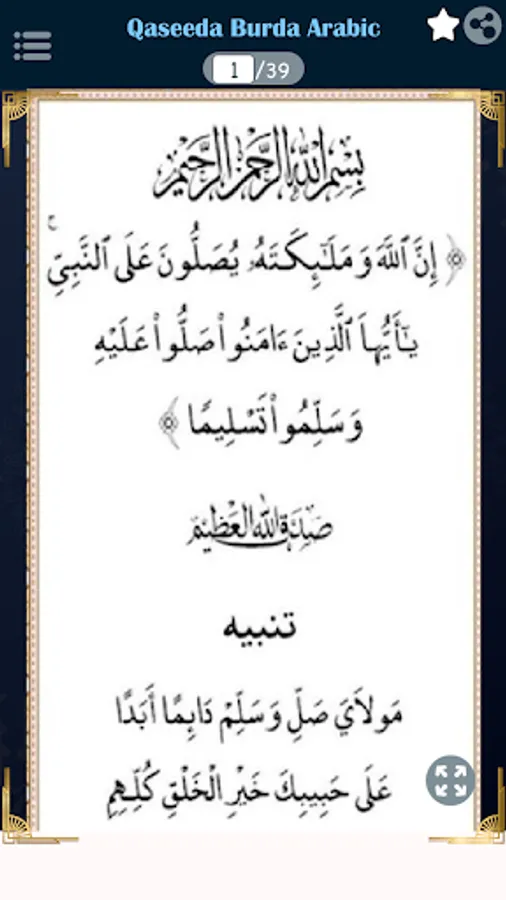 Qaseeda Burda Arabic
1/39
بِسْمِ اللهِ الرَّحْمٰنِ الرَّحِيْمِ
﴿ إِنَّ ٱللَّهَ وَمَلَـٰٓئِكَتَهُۥ يُصَلُّونَ عَلَى ٱلنَّبِىِّ ۚ
يَـٰٓأَيُّهَا ٱلَّذِينَ ءَامَنُوا۟ صَلُّوا۟ عَلَيْهِ
وَسَلِّمُوا۟ تَسْلِيمًا ﴾
صَدَقَ اللهُ العَظِيْمُ
تنبيه
مَولَايَ صَلِّ وَسَلِّمْ دَائِمًا أَبَدًا
عَلَى حَبِيبِكَ خَيْرِ الْخَلْقِ كُلِّهِمِ